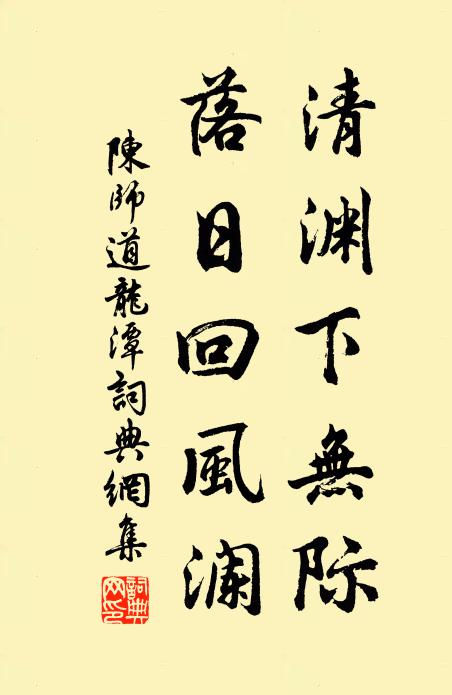 清渊下無际
落日回風澜
陳師道龍潭詞典網集
詞典網印